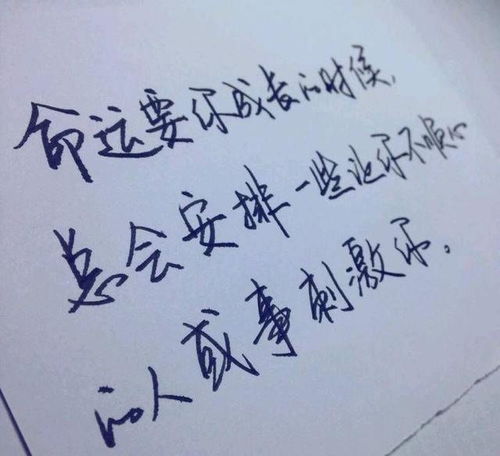 命运要你成长的时候,
总会安排一些让你不顺心
的人或事刺激你.